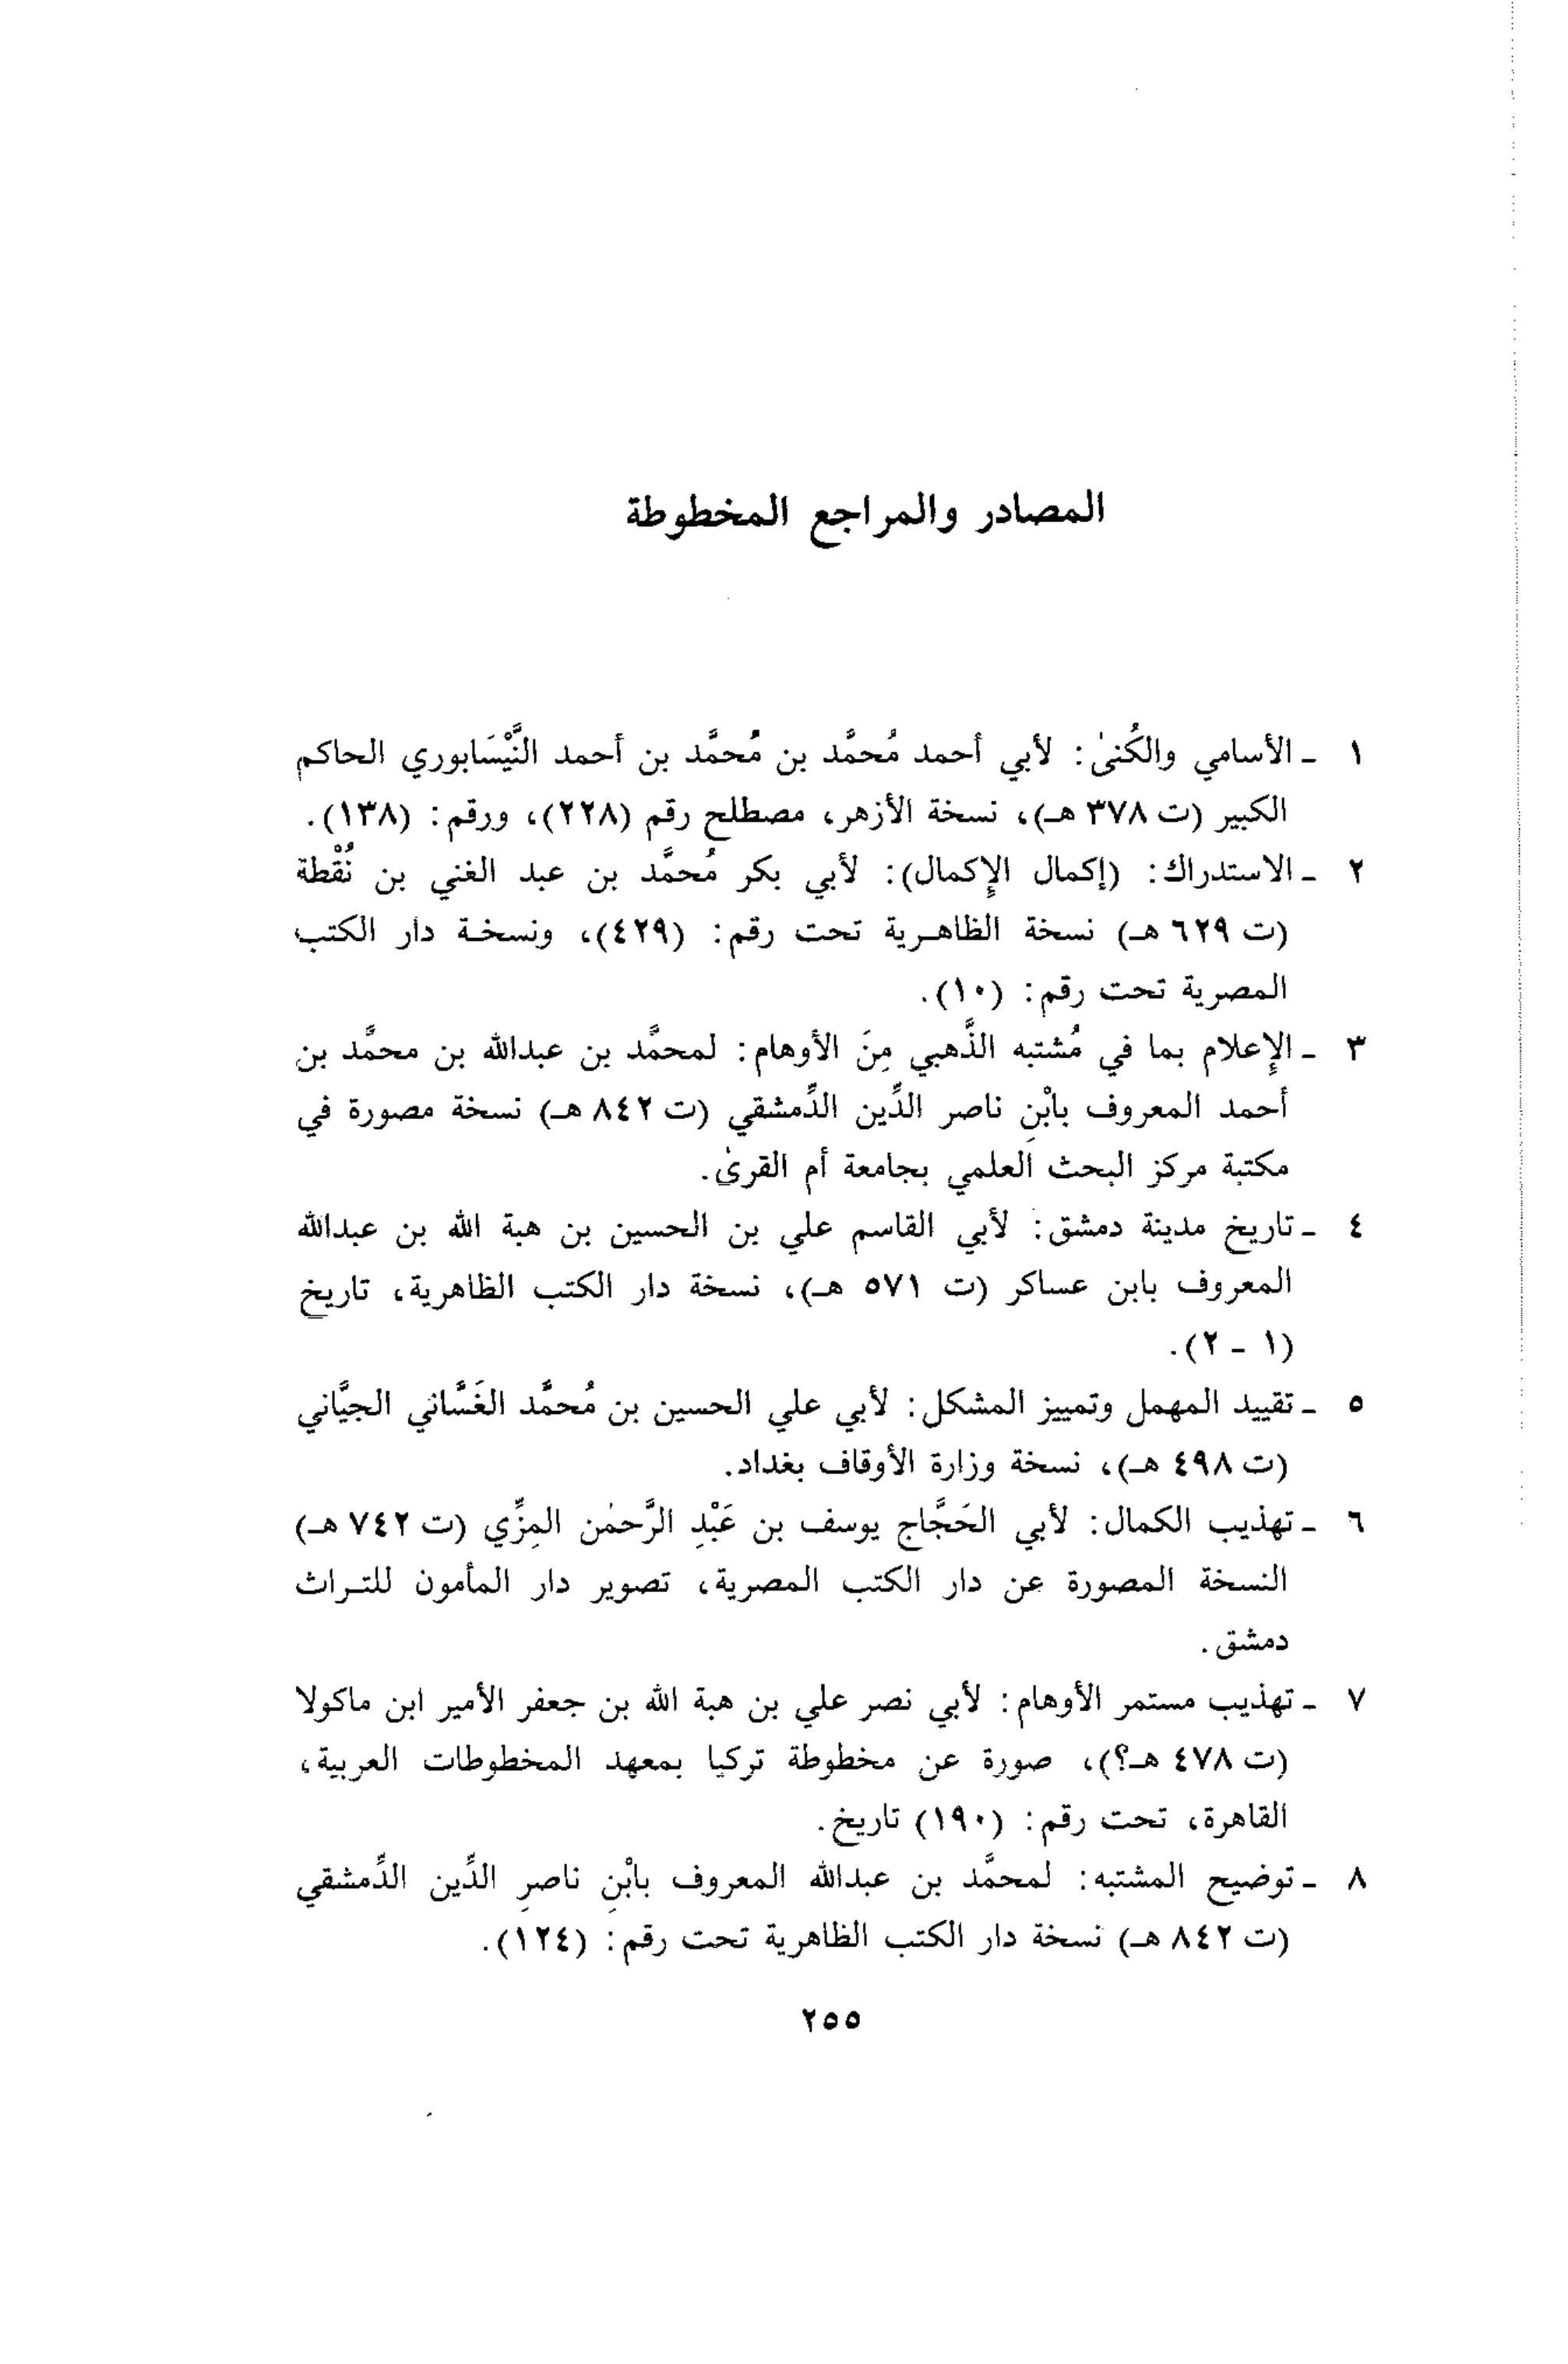 المصادر والمراجع المخطوطة
١ - الأسامي والكُنىٰ: لأبي أحمد مُحمَّد بن مُحمَّد بن أحمد النَّيْسَابوري الحاكم
الكبير (ت ٣٧٨ هـ)، نسخة الأزهر، مصطلح رقم (٢٢٨)، ورقم: (١٣٨).
٢ - الاستدراك: (إكمال الإكمال): لأبي بكر مُحمَّد بن عبد الغني بن نُقْطة
(ت ٦٢٩ هـ) نسخة الظاهرية تحت رقم: (٤٢٩)، ونسخة دار الكتب
المصرية تحت رقم: (١٠).
٣ - الإعلام بما في مُشتبه الذَّهبي مِنَ الأوهام: لمحمَّد بن عبدالله بن محمَّد بن
أحمد المعروف بابْنِ ناصر الدِّين الدِّمشقي (ت ٨٤٢ هـ) نسخة مصورة في
مكتبة مركز البحث العلمي بجامعة أم القرىٰ.
٤ - تاريخ مدينة دمشق: لأبي القاسم علي بن الحسين بن هبة الله بن عبدالله
المعروف بابن عساكر (ت ٥٧١ هـ)، نسخة دار الكتب الظاهرية، تاريخ
(١ - ٢).
٥ - تقييد المهمل وتمييز المشكل: لأبي علي الحسين بن مُحمَّد الغَسَّاني الجيَّاني
(ت ٤٩٨ هـ)، نسخة وزارة الأوقاف بغداد.
٦ - تهذيب الكمال: لأبي الحَجَّاج يوسف بن عَبْدِ الرَّحمٰن المِزِّي (ت ٧٤٢ هـ)
النسخة المصورة عن دار الكتب المصرية، تصوير دار المأمون للتراث
دمشق.
٧ - تهذيب مستمر الأوهام: لأبي نصر علي بن هبة الله بن جعفر الأمير ابن ماكولا
(ت ٤٧٨ هـ؟)، صورة عن مخطوطة تركيا بمعهد المخطوطات العربية،
القاهرة، تحت رقم: (١٩٠) تاريخ.
٨ - توضيح المشتبه: لمحمَّد بن عبدالله المعروف بابْنِ ناصرِ الدِّين الدِّمشقي
(ت ٨٤٢ هـ) نسخة دار الكتب الظاهرية تحت رقم: (١٢٤).
٢٥٥